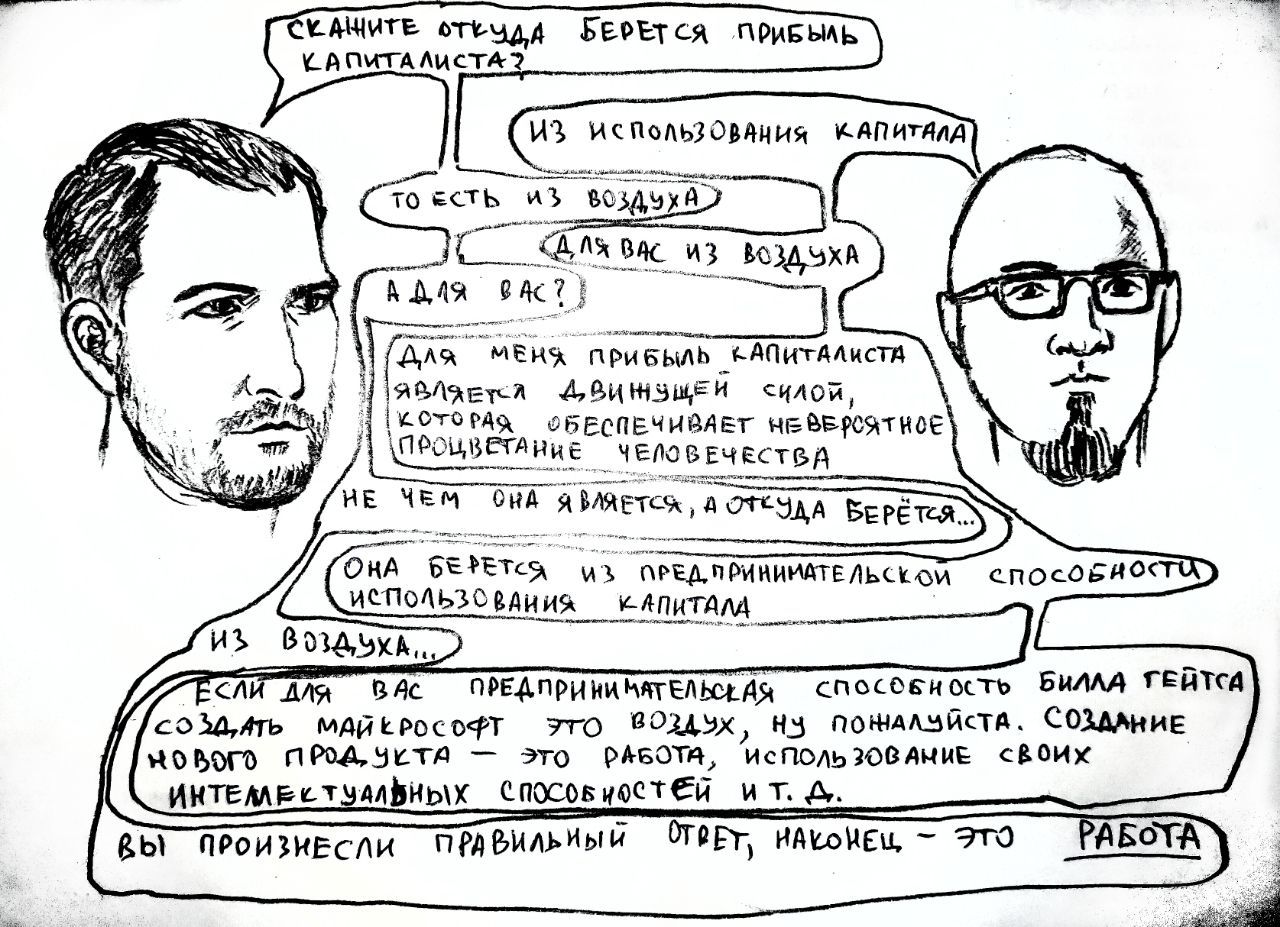 СКАЖИТЕ ОТКУДА БЕРЕТСЯ ПРИБЫЛЬ
КАПИТАЛИСТА?
ИЗ ИСПОЛЬЗОВАНИЯ КАПИТАЛА
ТО ЕСТЬ ИЗ ВОЗДУХА
ДЛЯ ВАС ИЗ ВОЗДУХА
А ДЛЯ ВАС?
ДЛЯ МЕНЯ ПРИБЫЛЬ КАПИТАЛИСТА
ЯВЛЯЕТСЯ ДВИЖУЩЕЙ СИЛОЙ,
КОТОРАЯ ОБЕСПЕЧИВАЕТ НЕВЕРОЯТНОЕ
ПРОЦВЕТАНИЕ ЧЕЛОВЕЧЕСТВА
НЕ ЧЕМ ОНА ЯВЛЯЕТСЯ, А ОТКУДА БЕРЁТСЯ...
ОНА БЕРЕТСЯ ИЗ ПРЕДПРИНИМАТЕЛЬСКОЙ СПОСОБНОСТИ
ИСПОЛЬЗОВАНИЯ КАПИТАЛА
ИЗ ВОЗДУХА...
ЕСЛИ ДЛЯ ВАС ПРЕДПРИНИМАТЕЛЬСКАЯ СПОСОБНОСТЬ БИЛЛА ГЕЙТСА
СОЗДАТЬ МАЙКРОСОФТ ЭТО ВОЗДУХ, НУ ПОЖАЛУЙСТА. СОЗДАНИЕ
НОВОГО ПРОДУКТА — ЭТО РАБОТА, ИСПОЛЬЗОВАНИЕ СВОИХ
ИНТЕЛЛЕКТУАЛЬНЫХ СПОСОБНОСТЕЙ И Т. Д.
ВЫ ПРОИЗНЕСЛИ ПРАВИЛЬНЫЙ ОТВЕТ, НАКОНЕЦ — ЭТО РАБОТА